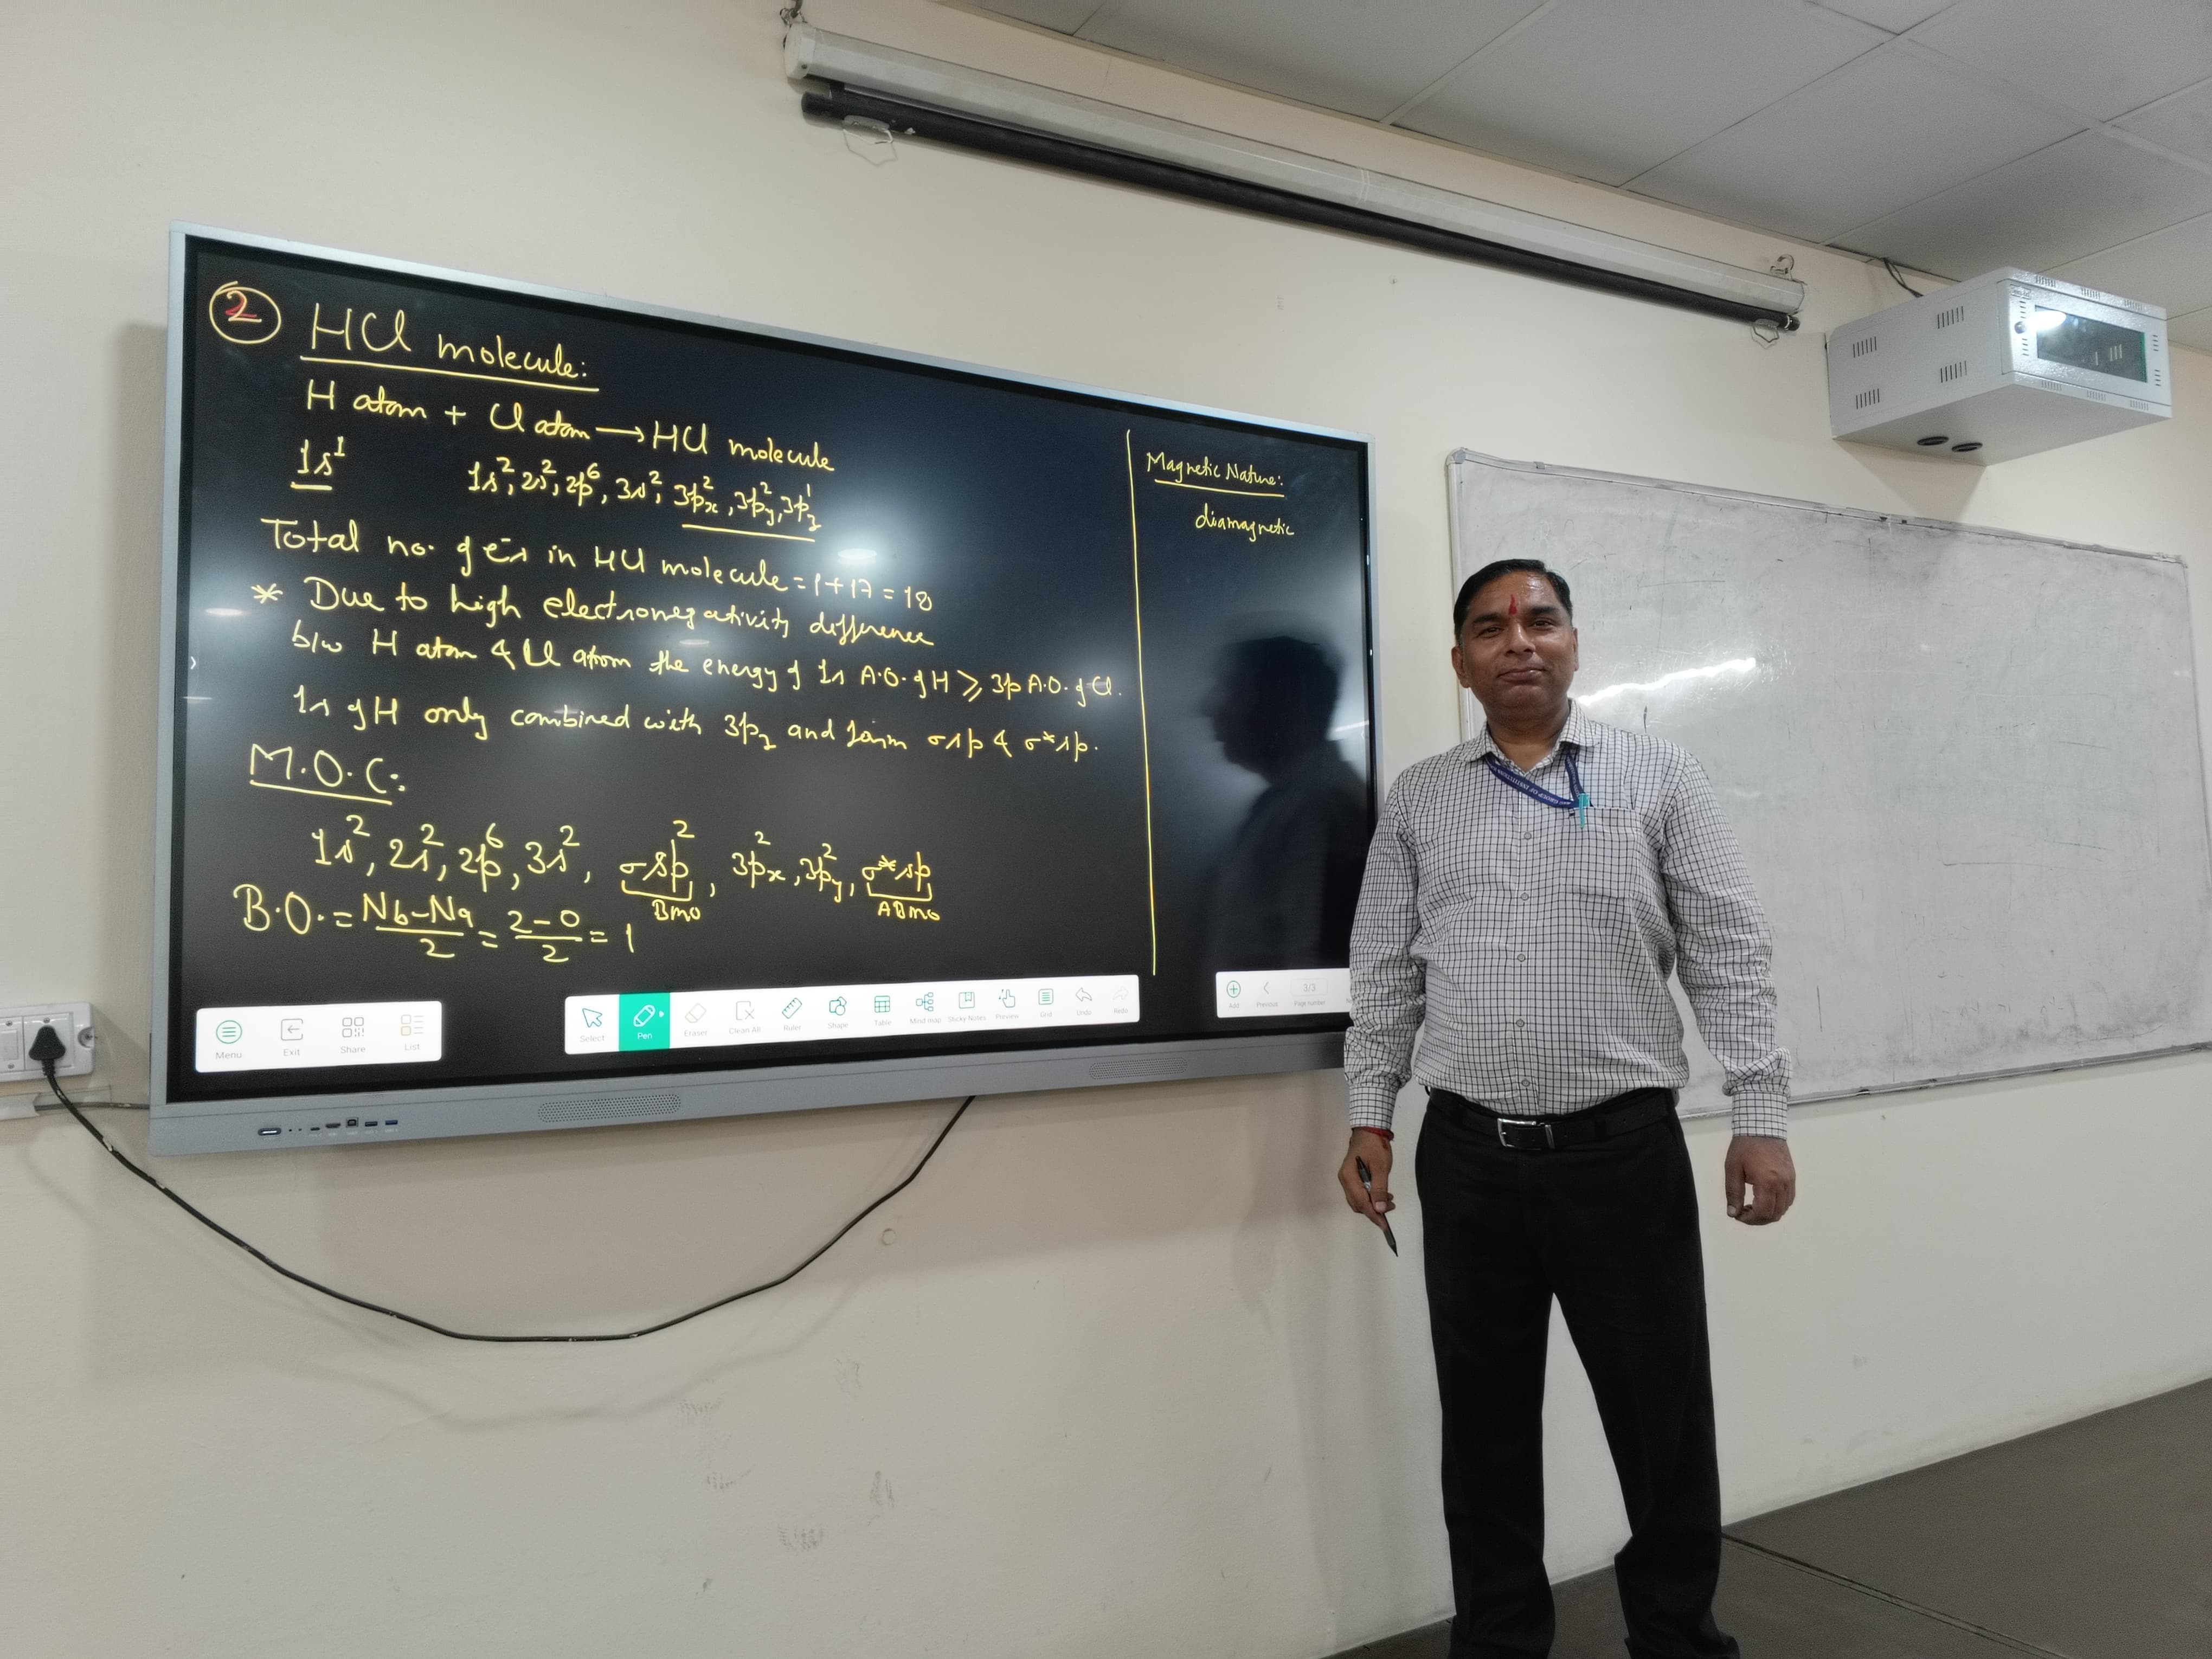 2 HCl molecule:
H atom + Cl atom → HCl molecule
1s¹ 1s², 2s², 2p⁶, 3s², 3pₓ², 3pᵧ², 3p_z¹
Total no. of e⁻s in HCl molecule = 1 + 17 = 18
* Due to high electronegativity difference
b/w H atom & Cl atom the energy of 1s A.O. of H ⩾ 3p A.O. of Cl.
1s of H only combined with 3p_z and form σsp & σ*sp.
M.O.C:
1s², 2s², 2p⁶, 3s², σsp², 3pₓ², 3pᵧ², σ*sp
BMO ABMO
B.O. = Nb-Na/2 = 2-0/2 = 1
Magnetic Nature:
diamagnetic
Menu Exit Share List
Select Pen Eraser Clean All Ruler Shape Table Mind map Sticky Notes Preview Grid Undo Redo
Add Previous 3/3 Page number
GROUP OF INSTITUTIONS